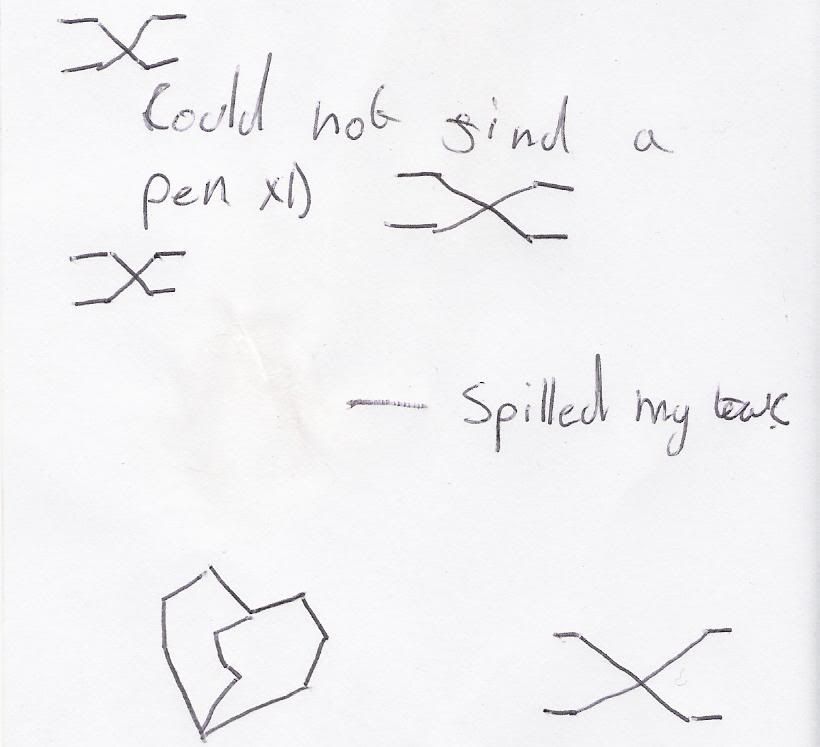 Could not find a
pen xD
— Spilled my